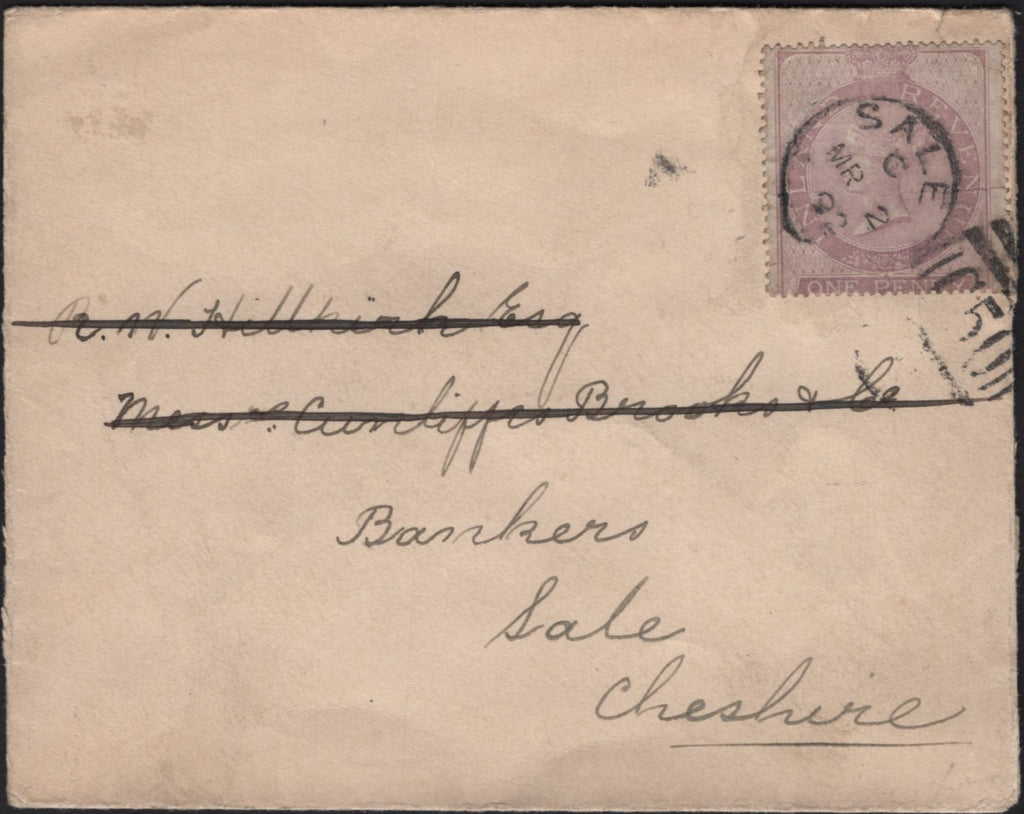 INLAND REVENUE
ONE PENNY
SALE
C
MR 2
R. W. Hillkirk Esq
Messrs. Cunliffes Brooks & Co
Bankers
Sale
Cheshire